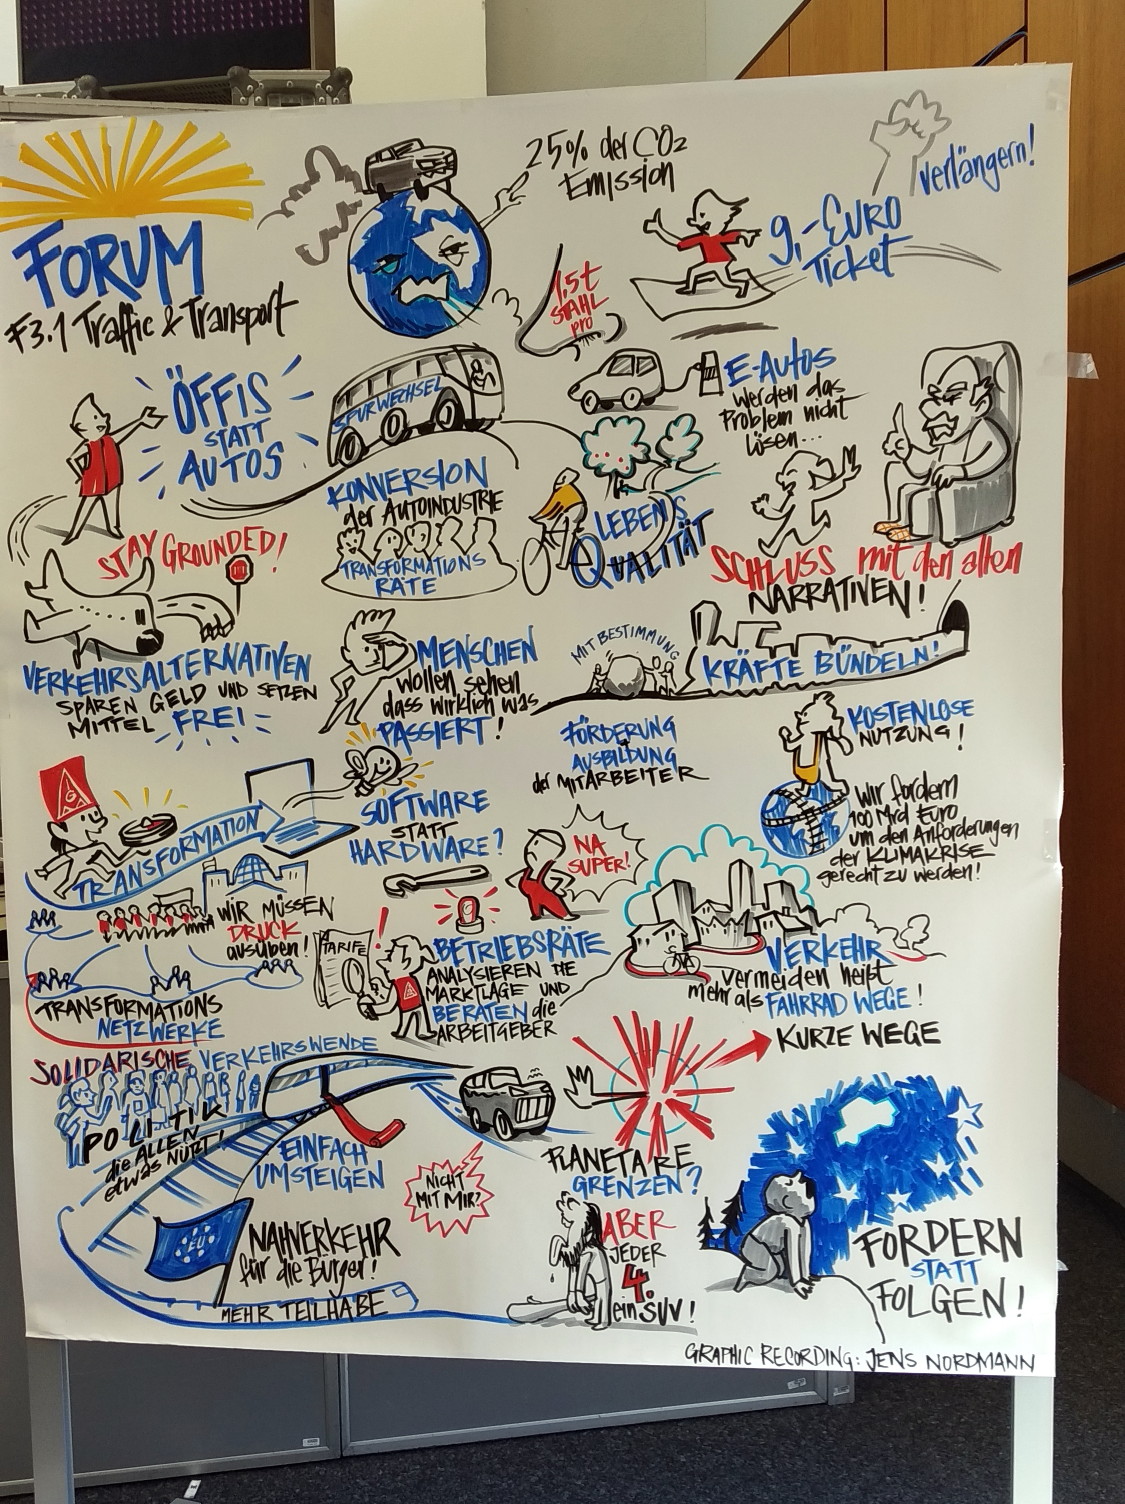 FORUM
F3.1 Traffic & Transport
25% der CO2
Emission
verlängern!
9,-EURO
Ticket
1,5t
STAHL
pro
ÖFFIS
STATT
AUTOS
SPURWECHSEL
E-AUTOS
werden das
Problem nicht
lösen...
KONVERSION
der AUTOINDUSTRIE
TRANSFORMATIONS
RÄTE
LEBENS
QUALITÄT
STAY GROUNDED!
SCHLUSS mit den alten
NARRATIVEN!
VERKEHRSALTERNATIVEN
SPAREN GELD UND SETZEN
MITTEL FREI
MENSCHEN
wollen sehen
dass wirklich was
PASSIERT!
MITBESTIMMUNG
KRÄFTE BÜNDELN!
FÖRDERUNG
+
AUSBILDUNG
der MITARBEITER
KOSTENLOSE
NUTZUNG!
Wir fordern
100 Mrd Euro
um den Anforderungen
der KLIMAKRISE
gerecht zu werden!
TRANSFORMATION
SOFTWARE
STATT
HARDWARE?
NA
SUPER!
WIR MÜSSEN
DRUCK
ausüben!
TRANSFORMATIONS
NETZWERKE
TARIFE
!
BETRIEBSRÄTE
ANALYSIEREN DIE
MARKTLAGE UND
BERATEN die
ARBEITGEBER
VERKEHR
vermeiden heißt
mehr als FAHRRAD WEGE!
KURZE WEGE
SOLIDARISCHE VERKEHRSWENDE
POLITIK
die ALLEN
etwas NÜTZT!
EINFACH
UMSTEIGEN
NICHT
MIT MIR?
PLANETARE
GRENZEN?
EU
NAHVERKEHR
für die Bürger!
MEHR TEILHABE
ABER
JEDER
4.
ein SUV!
FORDERN
STATT
FOLGEN!
GRAPHIC RECORDING: JENS NORDMANN